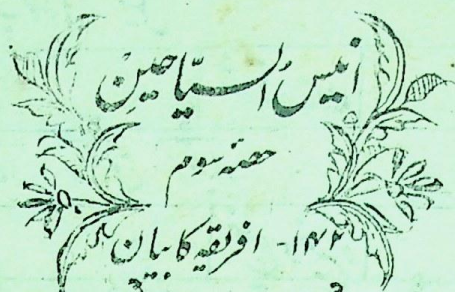 انیسُ السیّاحین
حصہ سوم
۱۴۲- افریقہ کا بیان